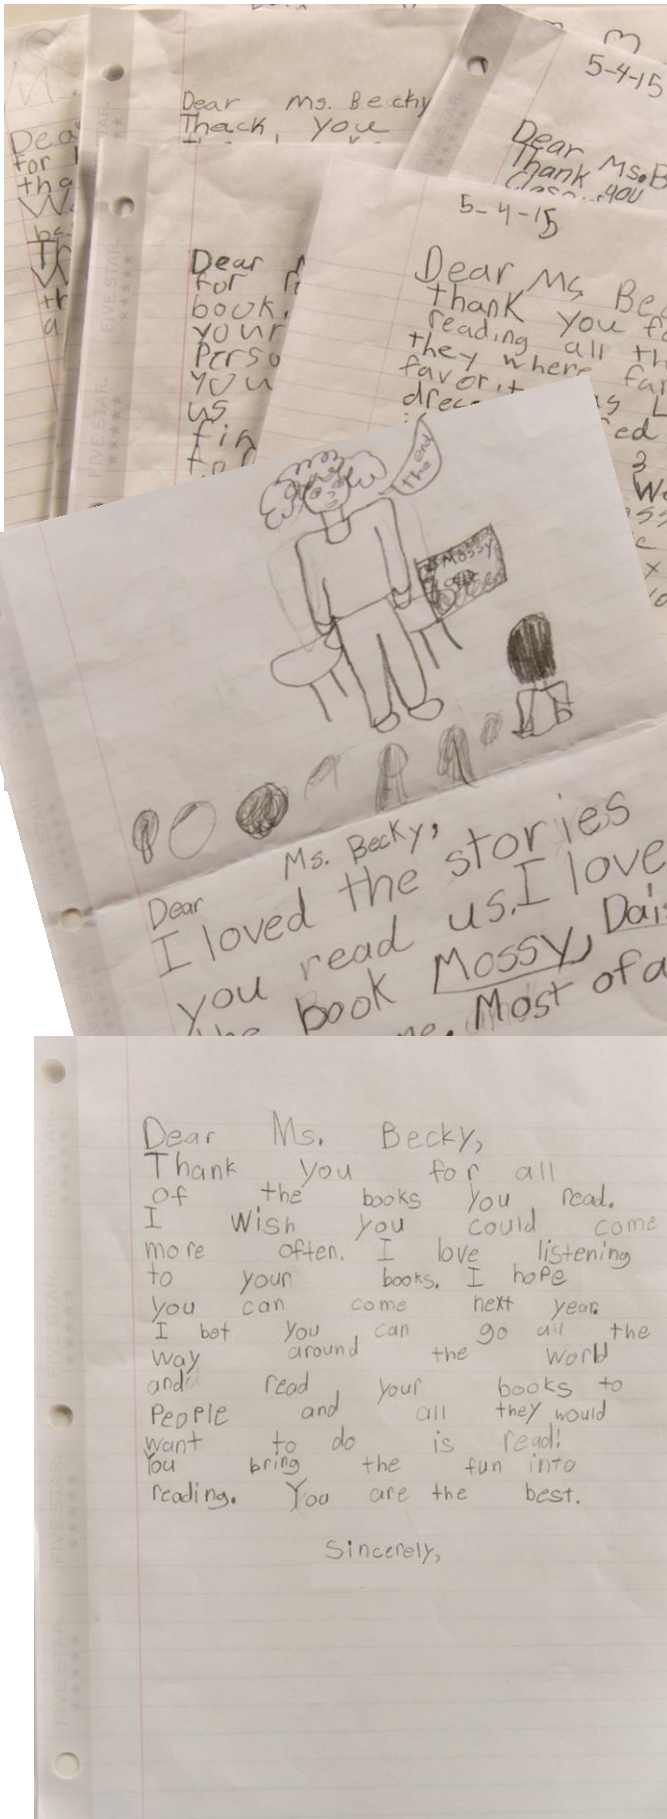 Dear Ms. Becky
Thack you
5-4-15
Dear Ms. B
Thank you
Dea
for
tha
5-4-15
Dear
for
book.
your
Perso
you
us
fin
Dear Ms Bec
thank you fo
reading all th
they where fav
favorit
drec
ed
3
We
FIVE STAR
FIVE STAR
FIVE STAR
the end
Mossy
Dear Ms. Becky,
I loved the stories
you read us. I love
the book Mossy, Dais
me. Most of a
Dear Ms. Becky,
Thank you for all
of the books you read.
I wish you could come
more often. I love listening
to your books. I hope
you can come next year.
I bet you can go all the
way around the world
and read your books to
People and all they would
want to do is read!
You bring the fun into
reading. You are the best.
Sincerely,
FIVE STAR
FIVE STAR
FIVE STAR